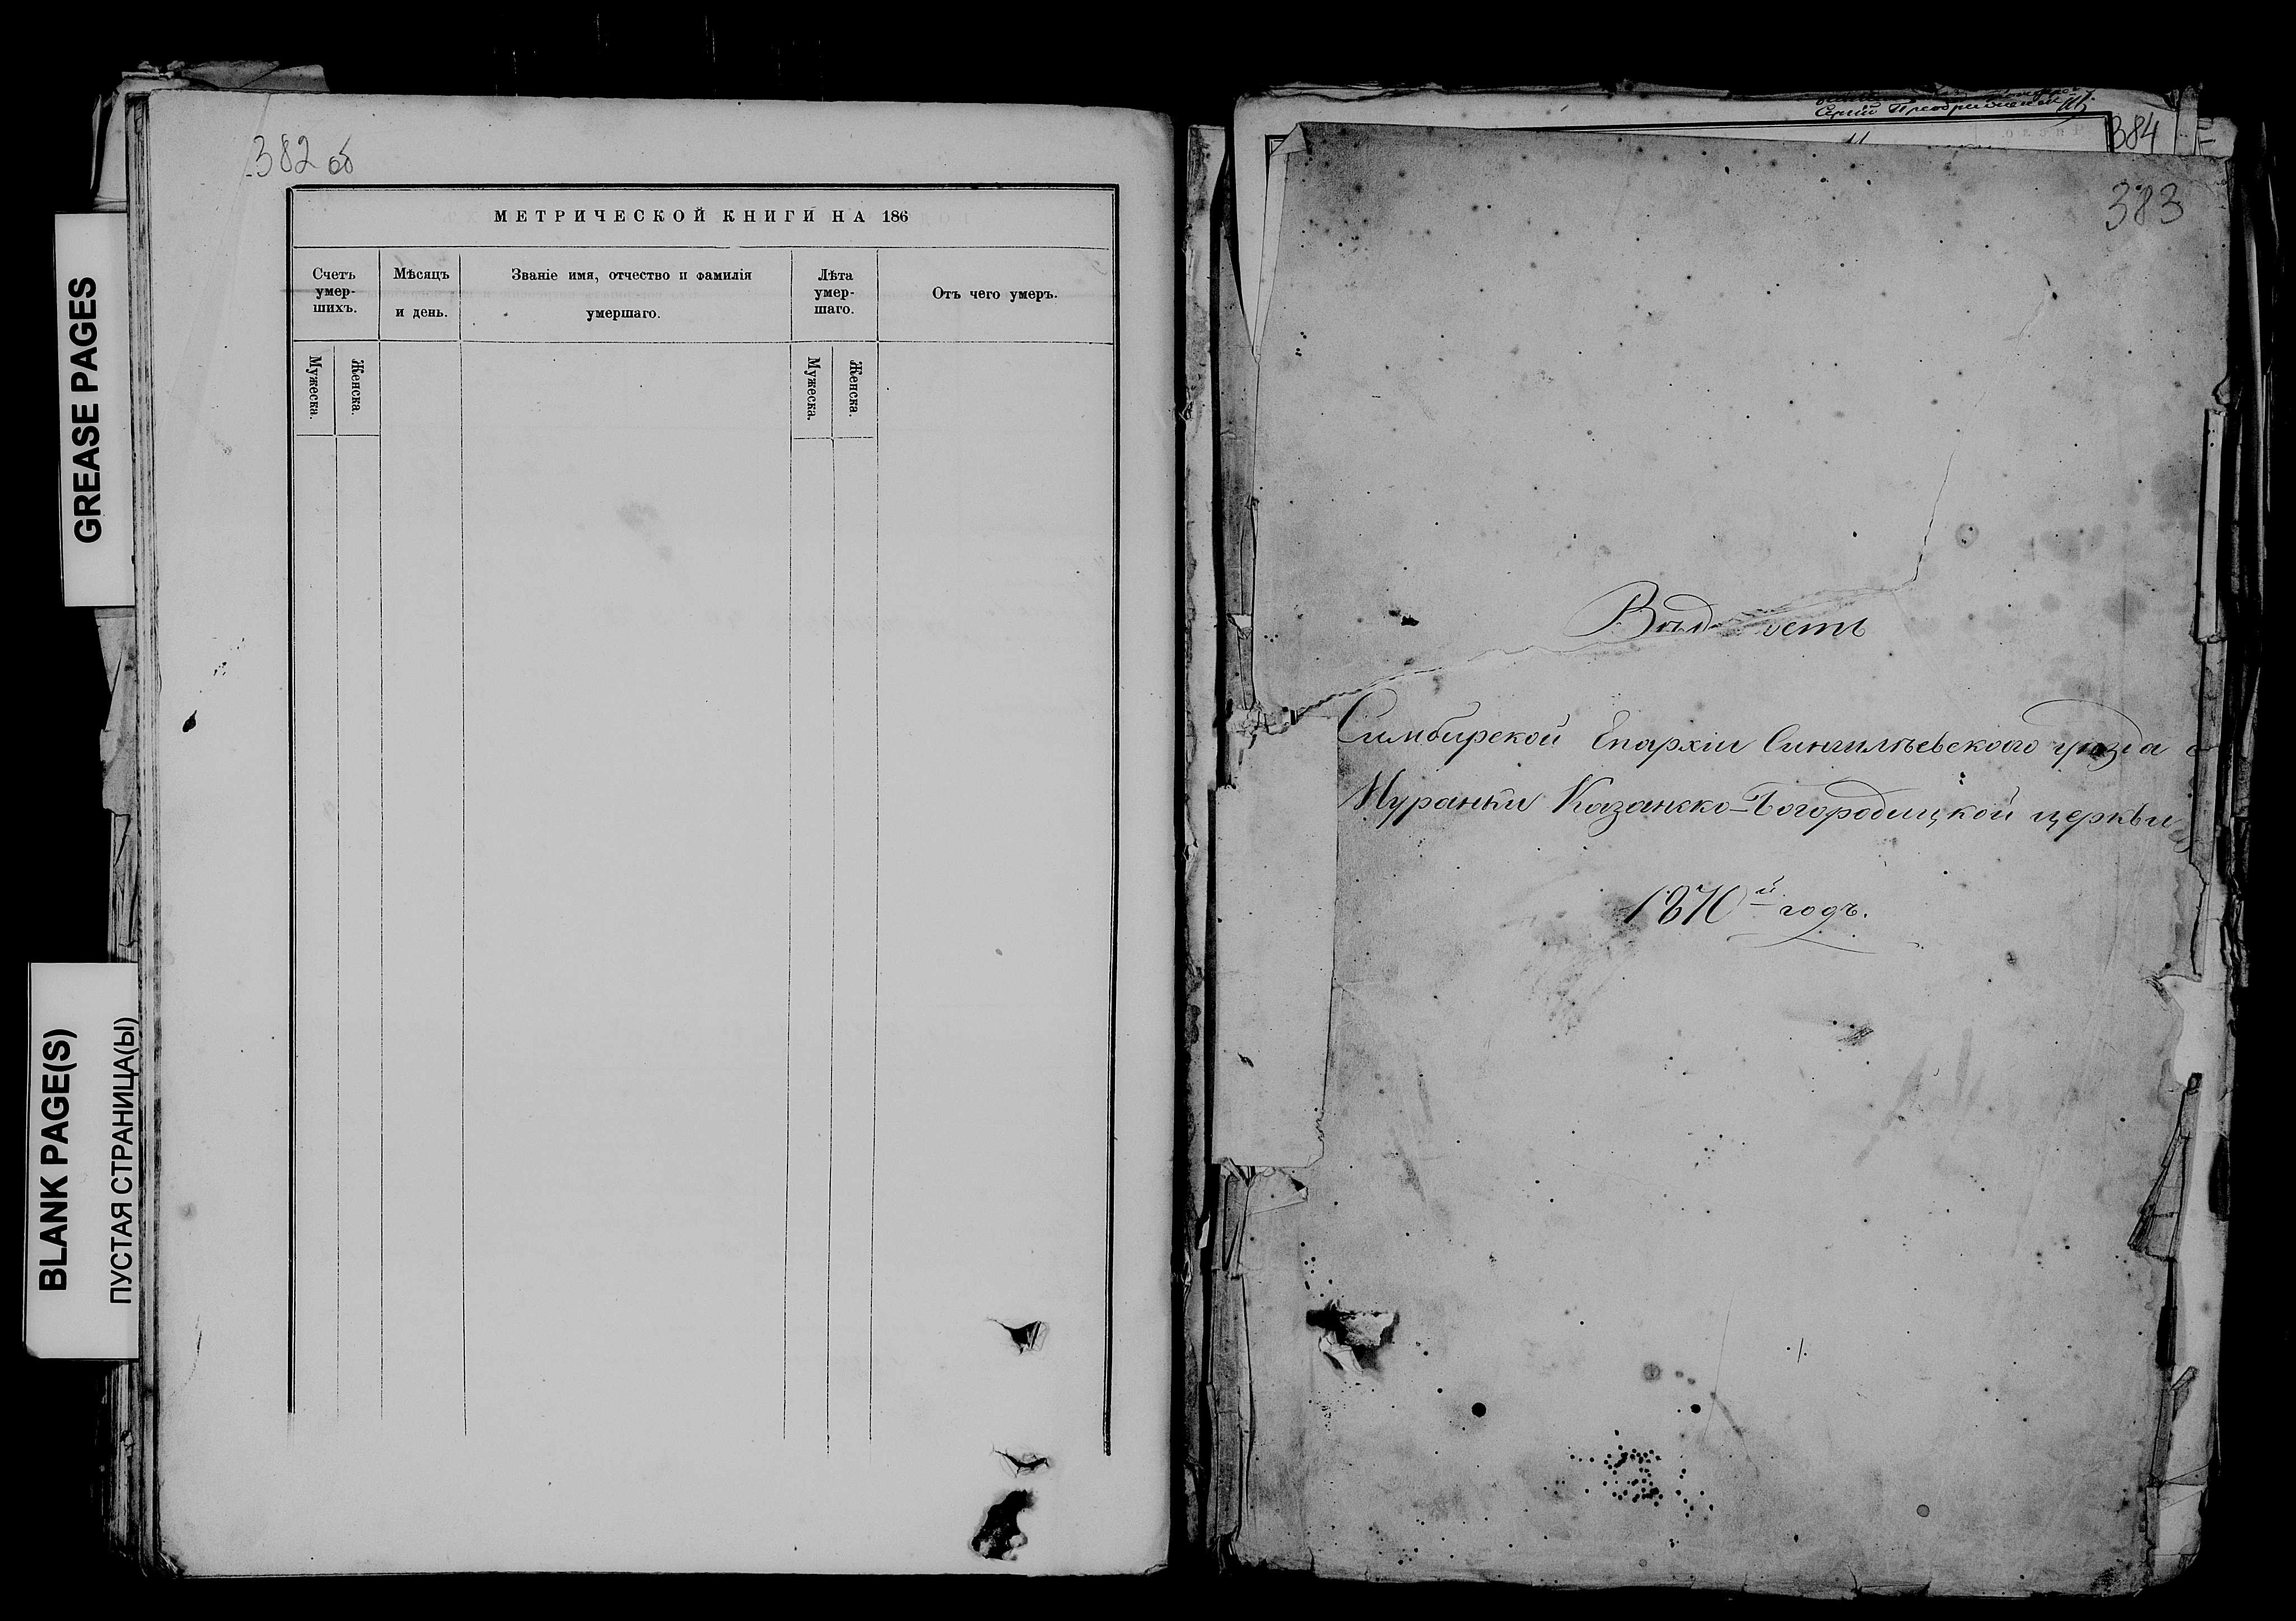 GREASE PAGES
BLANK PAGE(S)
ПУСТАЯ СТРАНИЦА(Ы)
382 об
МЕТРИЧЕСКОЙ КНИГИ НА 186
Счетъ умер-шихъ.
Мѣсяцъ и день.
Званіе имя, отчество и фамилія умершаго.
Лѣта умер-шаго.
Отъ чего умеръ.
Мужеска.
Женска.
Мужеска.
Женска.
384
383
Симбирской Епархіи Сингилѣевскаго уѣзда с
Муранки Казанско-Богородицкой церкви
1870й годъ.